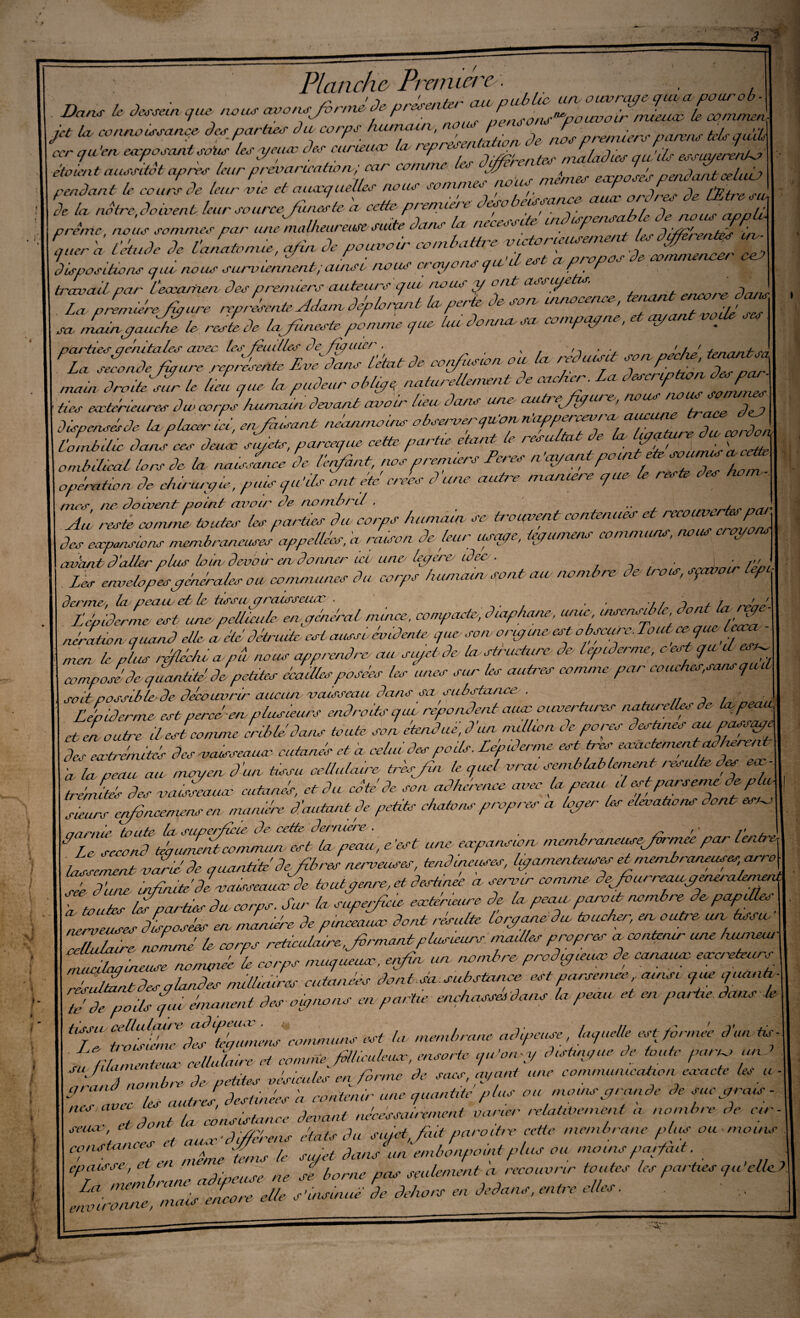 3
Planche Premiere.
Dans le dessein que nous avons formé de présenter au public un ouvrage qui a pour ob-
jet la connoissance des parties du corps humain, nous pensons ne pouvoir mieux le commen-
cer qu'en exposant sous les yeux des curieux la représentation de nos premiers parens tels qu'ils
étoient aussitôt après leur prévarication; car comme les différentes maladies qu'ils essuyerent
pendant le cours de leur vie et auxquelles nous sommes nous mêmes exposés pendant celui
de la nôtre, doivent leur source funeste à cette premiere désobéissance aux ordres de l'Etre su-
prême, nous sommes par une malheureuse suite dans la necessité indispensable de nous appli-
quer à l'étude de l'anatomie, afin de pouvoir combattre victorieusement les différentes in-
dispositions qui nous surviennent; ainsi nous croyons qu'il est a propos de commencer ce
travail par l'examen des premiers auteurs qui nous y ont assujetis.
La premiére figure représente Adam déplorant la perte de son innocence, tenant encore dans
sa main gauche le reste de la funeste pomme que lui donna sa compagne, et ayant voilé ses
parties génitales avec les feuilles de figuier.
La seconde figure représente Eve dans l'état de confusion où la réduisit son péché, tenant sa
main droite sur le lieu que la pudeur oblige naturellement de cacher. La description des par-
ties extérieures du corps humain devant avoir lieu dans une autre figure, nous nous sommes
dispensés de la placer ici, en faisant néanmoins observer qu'on n'appercevra aucune trace de
l'ombilic dans ces deux sujets, parceque cette partie etant le résultat de la ligature du cordon
ombilical lors de la naissance de l'enfant, nos premiers Peres n'ayant point été soumis a cette
opération de chirurgie, puis qu'ils ont été creés d'une autre maniere que le reste des hom-
mes, ne doivent point avoir de nombril.
Au reste comme toutes les parties du corps humain se trouvent contenues et recouvertes par
des expansions membraneuses appellées, à raison de leur usage, tégumens communs, nous croyons
avant d'aller plus loin devoir en donner ici une legére idée.
Les envelopes générales ou communes du corps humain sont au nombre de trois, sçavoir l'épi-
derme, la peau et le tissu graisseux.
L'épiderme est une pellicule en général mince, compacte, diaphane, unie, insensible, dont la régé-
nération quand elle a été détruite est aussi évidente que son origine est obscure. Tout ce que l'exa-
men le plus réfléchi a pû nous apprendre au sujet de la structure de l'épiderme, c'est qu'il est
composé de quantité de petites écailles posées les unes sur les autres comme par couches, sans qu'il
soit possible de découvrir aucun vaisseau dans sa substance.
L'épiderme est percé en plusieurs endroits qui répondent aux ouvertures naturelles de la peau,
et en outre il est comme criblé dans toute son étendue, d'un million de pores destinés au passage
des extrémités des vaisseaux cutanés et à celui des poils. L'épiderme est très exactement adhérent
à la peau au moyen d'un tissu cellulaire très fin le quel vrai semblablement résulte des ex-
trémités des vaisseaux cutanés, et du côté de son adhérence avec la peau il est parsemé de plu-
sieurs enfoncemens en maniére d'autant de petits chatons propres à loger les élévations dont est
garnie toute la superficie de cette derniére.
Le second tégument commun est la peau, c'est une expansion membraneuse formée par l'entre-
lassement varié de quantité de fibres nerveuses, tendineuses, ligamenteuses et membraneuses, arro-
sée d'une infinité de vaisseaux de tout genre, et destinée à servir comme de fourreau généralement
à toutes les parties du corps. Sur la superficie exterieure de la peau paroit nombre de papilles
nerveuses disposées en maniére de pinceaux dont résulte l'organe du toucher, en outre un tissu
cellulaire nommé le corps réticulaire, formant plusieurs mailles propres à contenir une humeur
mucilagineuse nommée le corps muqueux, enfin un nombre prodigieux de canaux excreteurs
résultant des glandes milliaires cutanées dont sa substance est parsemée, ainsi que quanti-
té de poils qui émanent des oignons en partie enchassés dans la peau et en partie dans le
tissu cellulaire adipeux.
Le troisiéme des tégumens communs est la membrane adipeuse, laquelle est formée d'un tis-
su filamenteux cellulaire et comme folliculeux, ensorte qu'on y distingue de toute part un
grand nombre de petites vésicules en forme de sacs, ayant une communication exacte les u-
nes avec les autres, destinées à contenir une quantité plus ou moins grande de suc grais-
seux, et dont la consistance devant nécessairement varier relativement à nombre de cir-
constances et aux différens états du sujet, fait paroitre cette membrane plus ou moins
épaisse, et en même tems le sujet dans un embonpoint plus ou moins parfait.
La membrane adipeuse ne se borne pas seulement à recouvrir toutes les parties qu'elle
environne, mais encore elle s'insinue de dehors en dedans, entre elles.